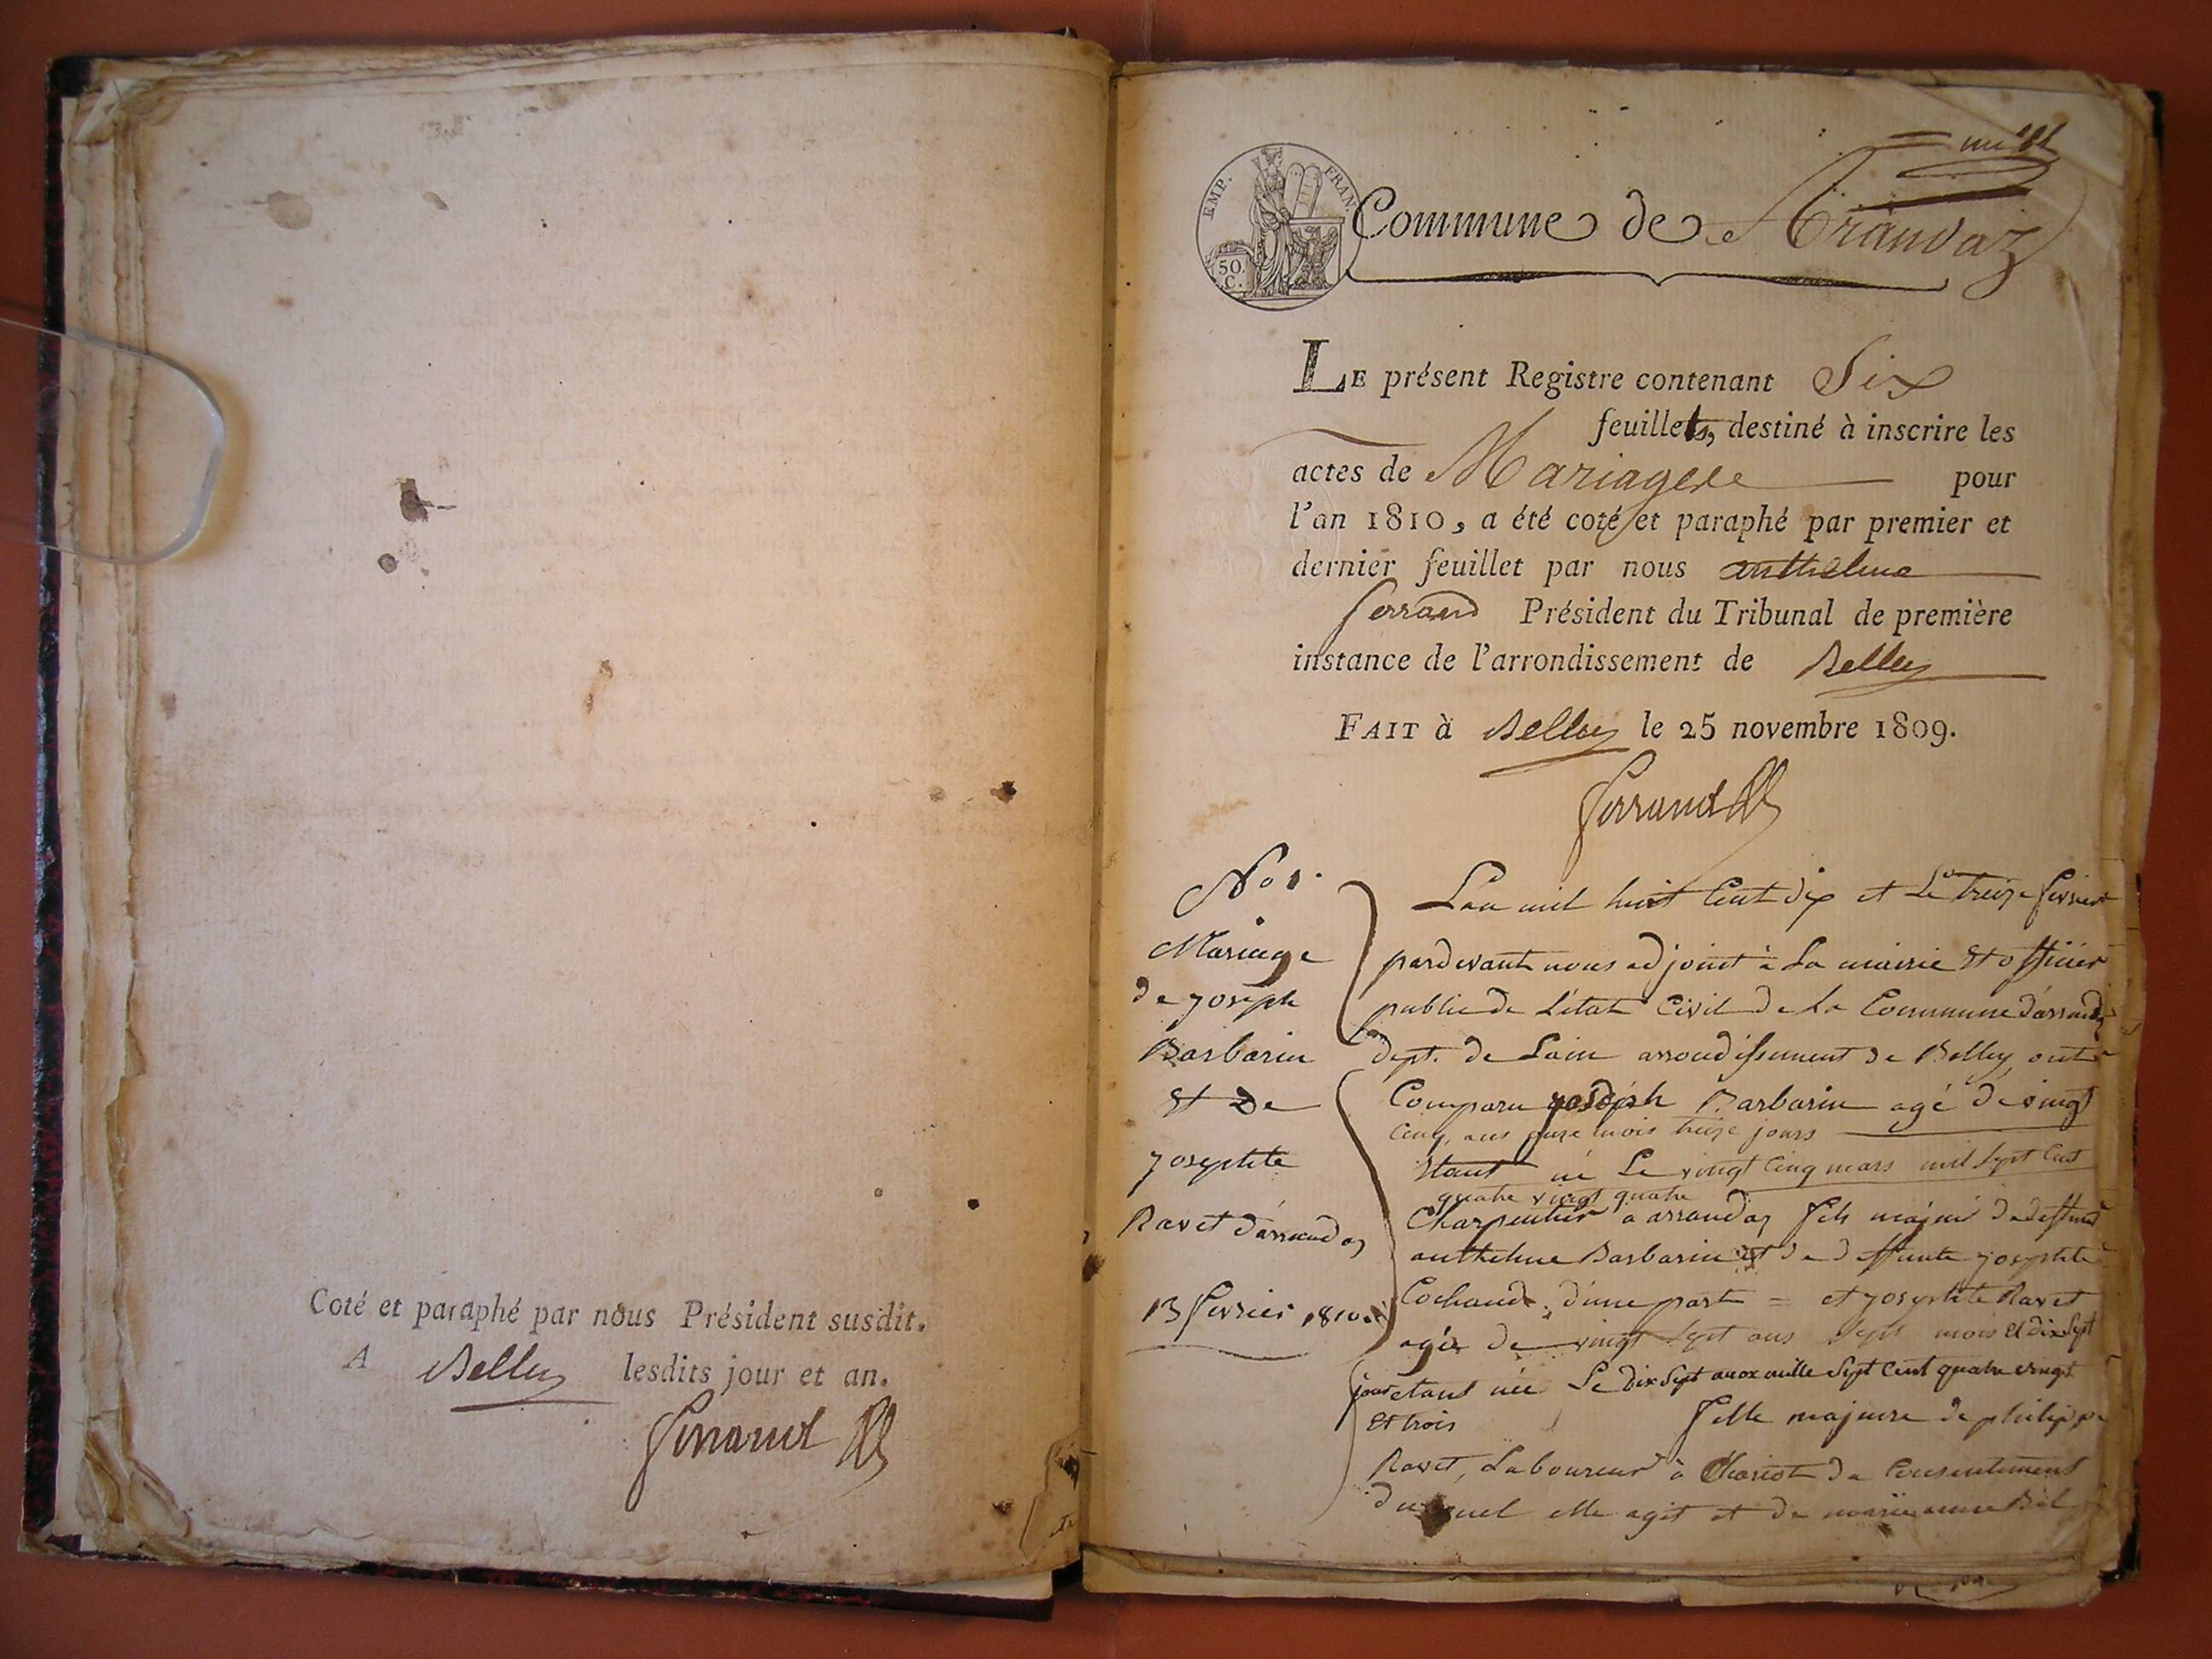 Coté et paraphé par nous Président susdit.
A Belley lesdits jour et an.
Ferrand
un
EMP. FRAN.
50. C.
Commune de Arandaz
LE présent Registre contenant Six
feuillets, destiné à inscrire les
actes de Mariages pour
l'an 1810, a été coté et paraphé par premier et
dernier feuillet par nous anthelme
ferrand Président du Tribunal de première
instance de l'arrondissement de Belley
FAIT à Belley le 25 novembre 1809.
Ferrand
No 1.
Mariage
de joseph
Barbarin
Et De
josephte
Ravet d'arandas
13 fevrier 1810.
L'an mil huit Cent dix et Le treize fevrier
pardevant nous adjoint à La mairie Et officier
public de L'état Civil de La Commune d'arandas
dept. de Lain arrondissement de Belley, ont
Comparu joseph Barbarin agé de vingt
Cinq, ans onze mois treize jours
Etant né Le vingt Cinq mars mil Sept Cent
quatre vingt quatre
Charpentier a arandas fils majeur de deffunt
anthelme Barbarin et de deffunte josephte
Cochand. d'une part = et josephte Ravet
agée de vingt Sept ans Sept mois Et dix Sept
jours etant née Le Dix Sept aoox mille Sept Cent quatre vingt
Et trois fille majeure de philippe
Ravet, Laboureur à de Consentement
duquel elle agit et de marie anne